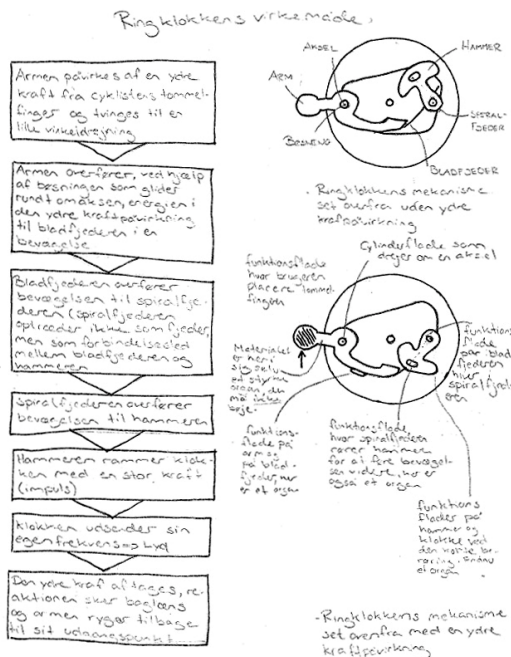 Ringklokkens virkemåde.
Armen påvirkes af en ydre
kraft fra cyklistens tommel-
finger og tvinges til en
lille vinkeldrejning
Armen overfører, ved hjælp
af bøsningen som glider
rundt om aksen, energien i
den ydre kraftpåvirkning
til bladfjederen i en
bevægelse
Bladfjederen overfører
bevægelsen til spiralfje-
deren (spiralfjederen
ikke som fjeder,
men som forbindelsesled
mellem bladfjederen og
hammeren
Spiralfjederen overfører
bevægelsen til hammeren
Hammeren rammer klok-
ken med en stor kraft
(impuls)
Klokken udsender sin
egenfrekvens => Lyd
Den ydre kraf aftages, re-
aktionen sker baglæns
og armen ryger tilbage
til sit udgangspunkt
AKSEL
HAMMER
ARM
BØSNING
SPIRAL-
FJEDER
BLADFJEDER
- Ringklokkens mekanisme
set ovenfra uden ydre
kraftpåvirkning
Cylinderflade som
drejer om en aksel
funktionsflade
hvor brugeren
placere tommel-
fingeren
Materialet
er her i
sig selv
på
organ den
må ikke
bøje.
funktions-
flade på
arm og
på blad-
fjeder, her
er et organ
funktionsflade,
hvor spiralfjederen
rører hammeren
for at føre bevægel-
sen videre, her er
også et organ
funktions
flade
blad
fjederen
spiralfjed
eren
funktions
flader på
hammer og
klokke ved
den korte be-
røring. Endnu
et organ
- Ringklokkens mekanisme
set ovenfra med en ydre
kraftpåvirkning